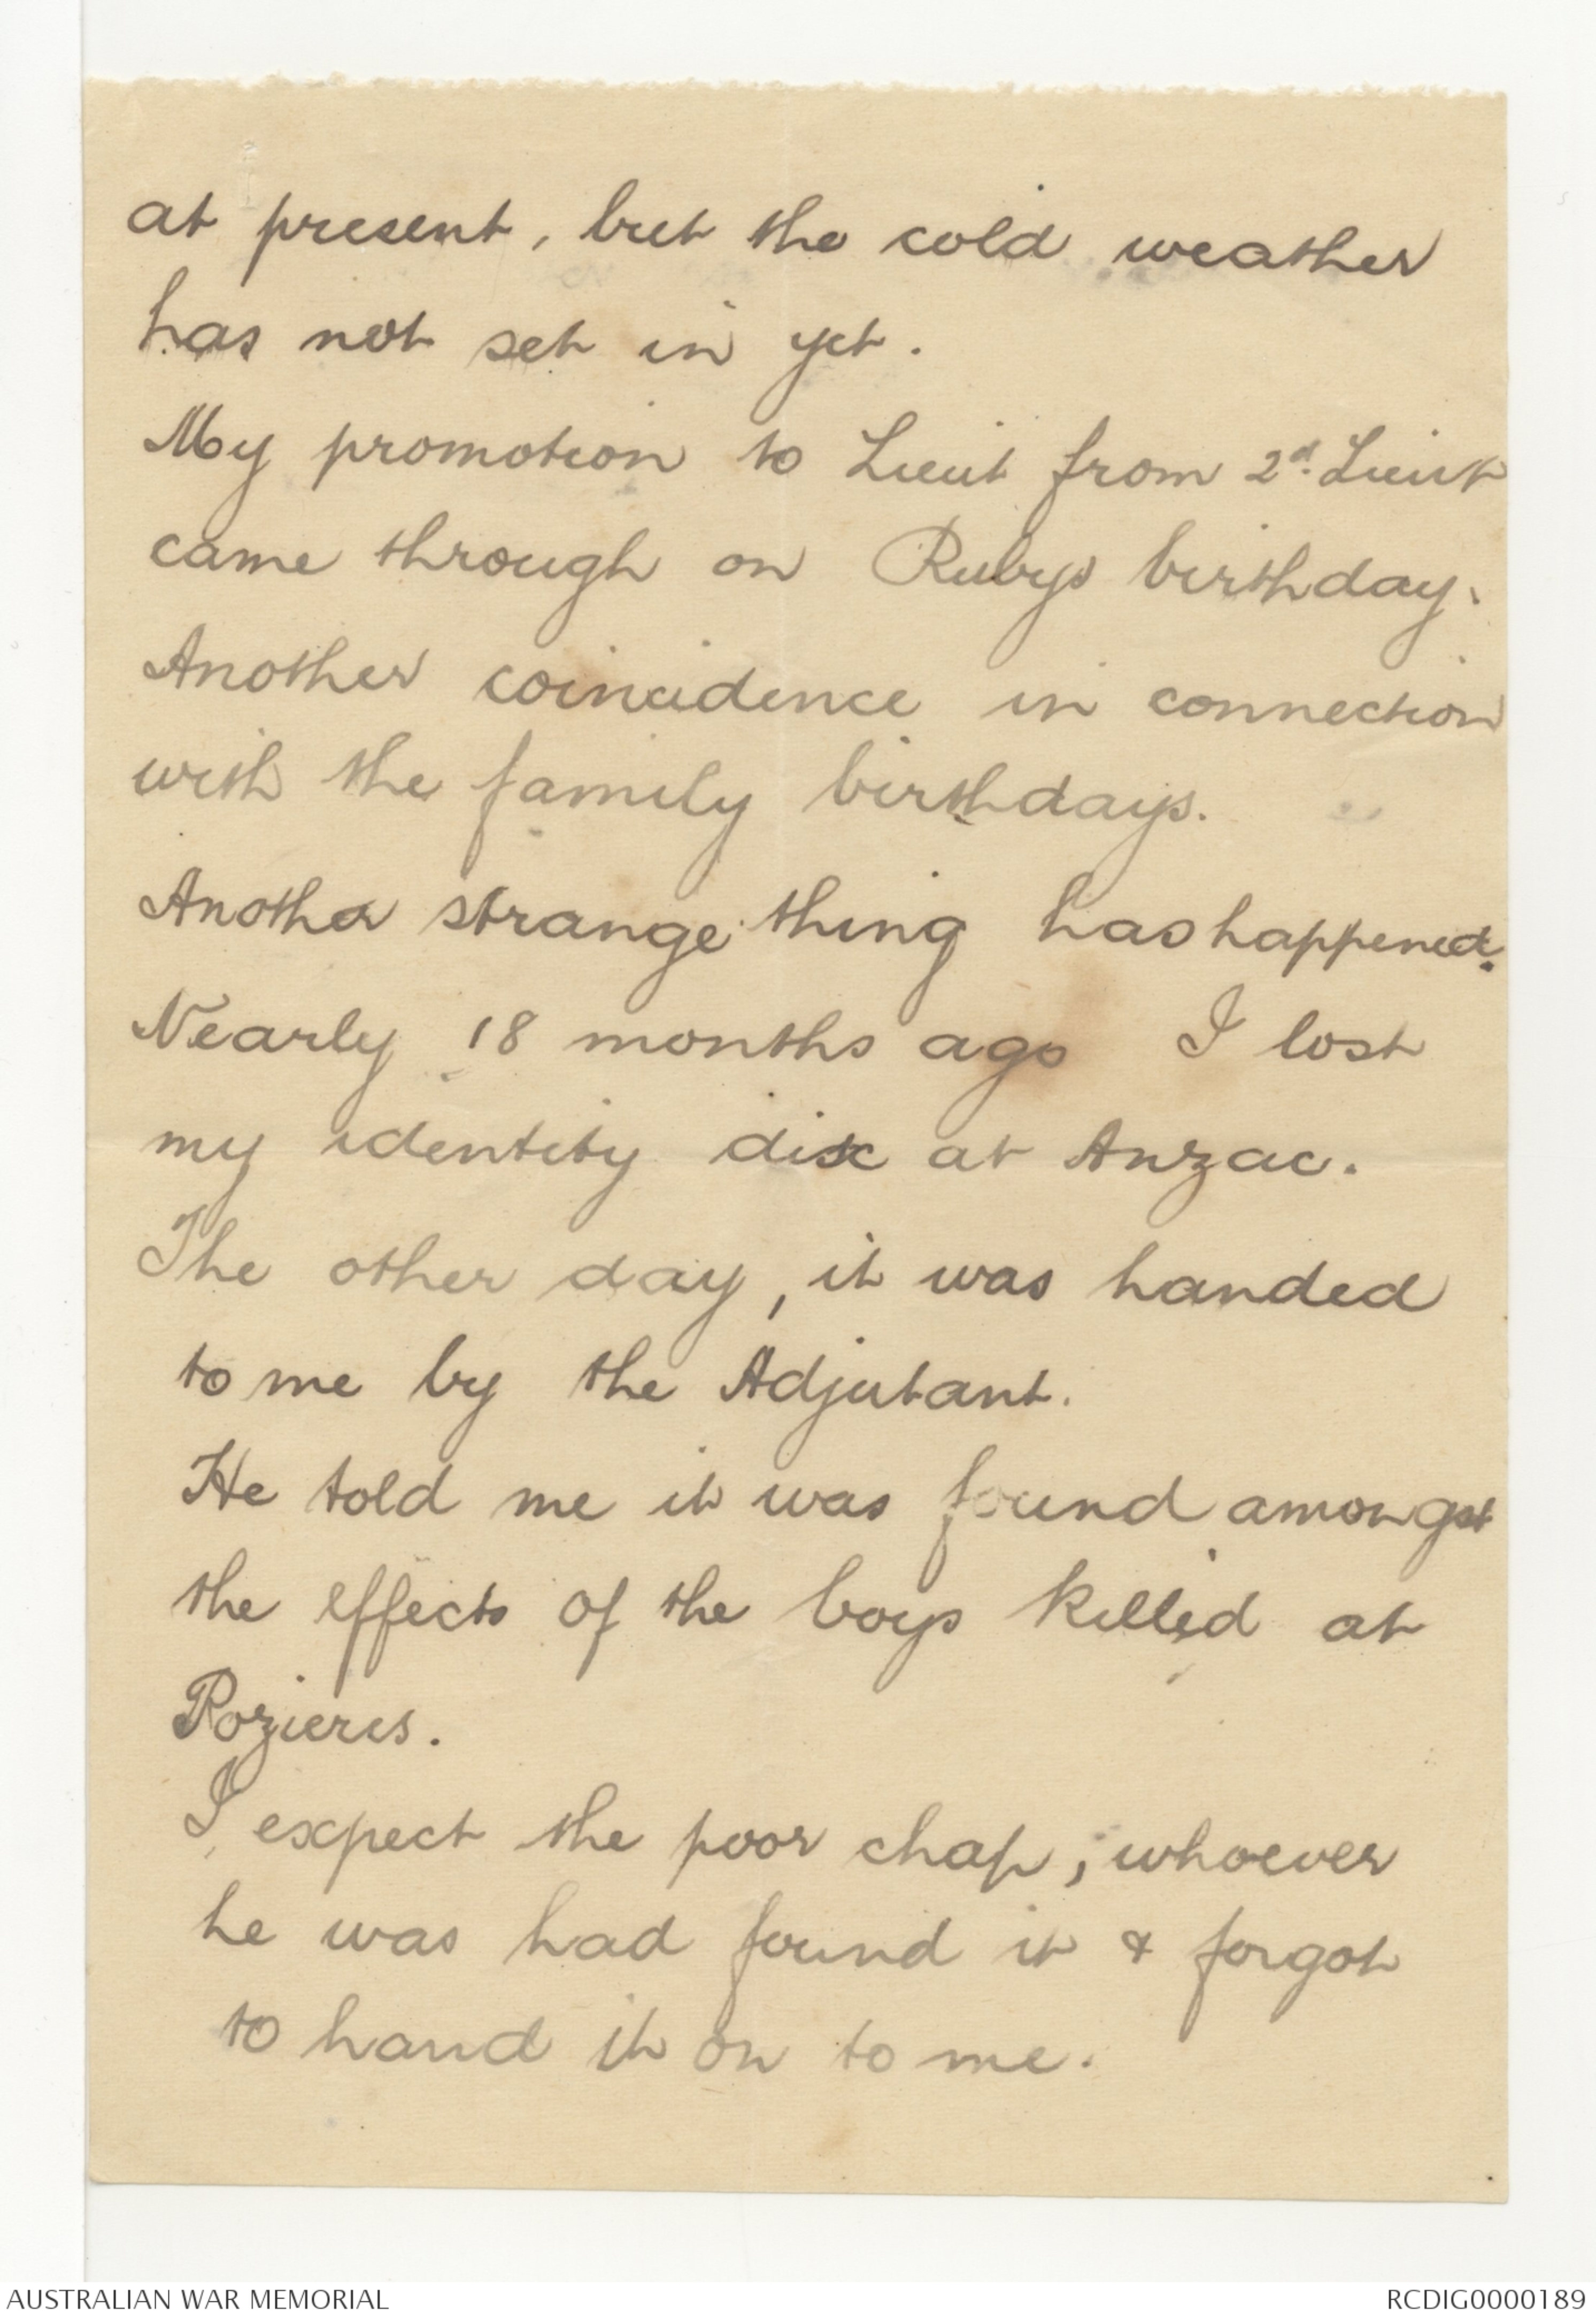 at present, but the cold weather
has not set in yet.
My promotion to Lieut from 2d. Lieut
came through on Rubys birthday.
Another coincidence in connection
with the family birthdays.
Another strange thing has happened.
Nearly 18 months ago I lost
my identity disc at Anzac.
The other day, it was handed
to me by the Adjutant.
He told me it was found amongst
the effects of the boys killed at
Pozieres.
I expect the poor chap, whoever
he was had found it & forgot
to hand it on to me.
AUSTRALIAN WAR MEMORIAL
RCDIG0000189